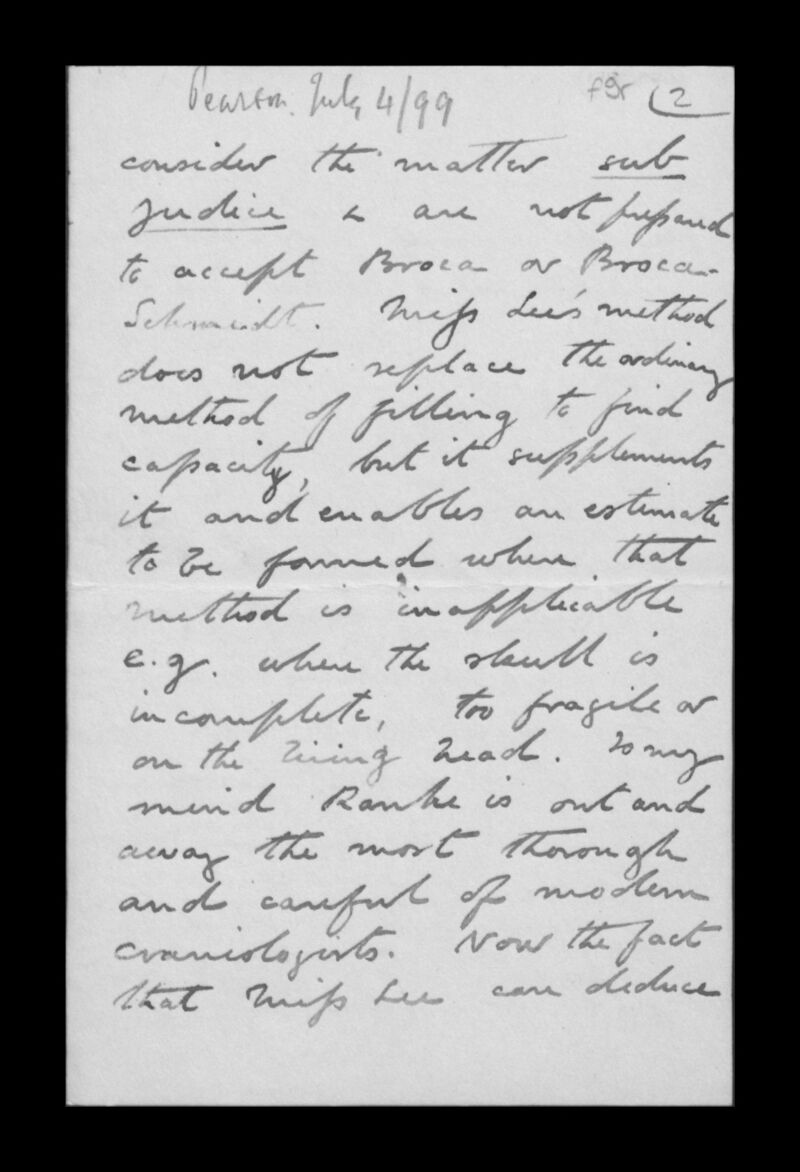 Pearson. July 4/99
f9r (2
consider the matter sub
judice & are not prepared
to accept Broca or Broca-
Schmidt. Miss Lee's method
does not replace the ordinary
method of filling to find
capacity, but it supplements
it and enables an estimate
to be formed where that
method is inapplicable
e.g. where the skull is
incomplete, too fragile or
on the living head. To my
mind Ranke is out and
away the most thorough
and careful of modern
craniologists. Now the fact
that Miss Lee can deduce